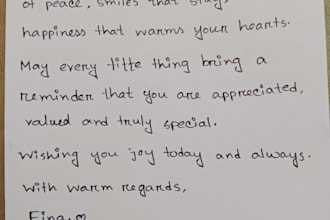 of peace, smiles that stay,
happiness that warms your hearts.
May every little thing bring a
reminder that you are appreciated,
valued and truly special.
Wishing you joy today and always.
With warm regards,